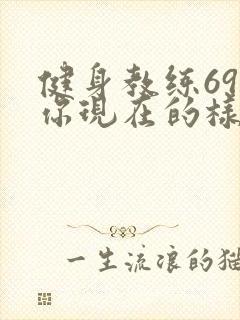 健身教练69
你现在的樣
一生流浪的猫